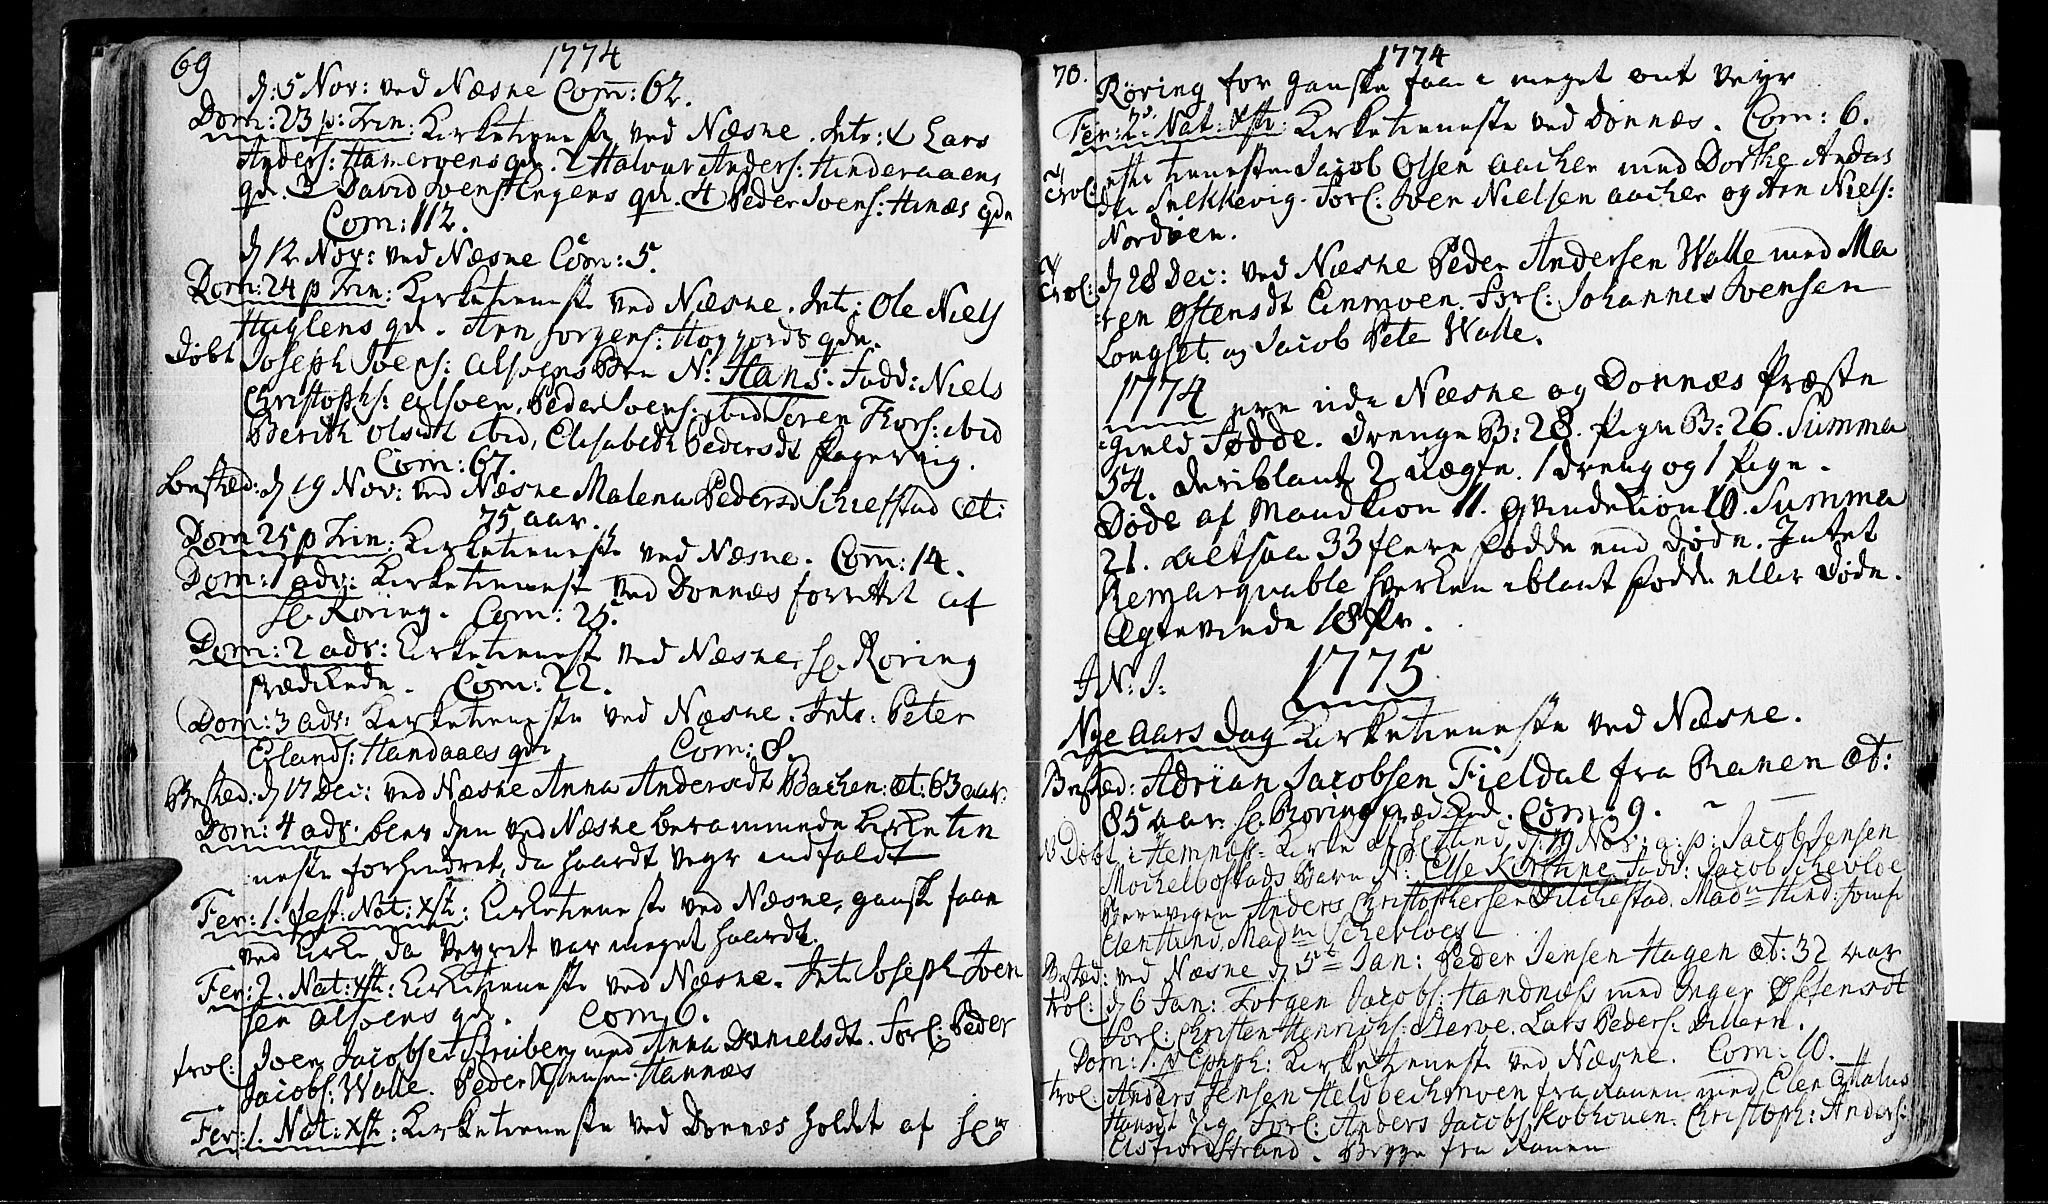 69
1774
d: 5 Nov: ved Næsne Com: 62.
Dom: 23 p: Trin: Kirketieneste ved Næsne. Intr: 1 Lars
Anders: Hamerøens qde. 2 Halvar Anders: Hinderaaens
qde. 3 David Ivens: Engens qde. 4 Peder Ivens: Hinæs qde
Com: 112.
d 12 Nov: ved Næsne Com: 5.
Dom: 24 p Trin: Kirketieneste ved Næsne. Int: Ole Niels
Huglens qde. Arn Jorgens: Hoggords qde.
Døbt Joseph Ivens: Alsøens Brn N: Hans. Fadd: Niels
Christophs: Alsøen, Peder Ivens: ibid Søren Thors: ibid
Berith Olsdt ibid, Elisabeth Pedersdt
Com: 67.
Begrav: d 19 Nov: ved Næsne Malena Pedersd æt:
75 aar.
Dom 25 p Trin: Kirketieneste ved Næsne. Com: 14.
Dom: 1 adv: Kirketieneste ved Donnæs forrettet af
Hr Roring. Com: 25.
Dom: 2 adv: Kirketieneste ved Næsne, Hr Roring
prædikede. Com: 22.
Dom: 3 adv: Kirketieneste ved Næsne. Intr: Peter
Erlands: Handaaes qde Com: 8.
d 17 Dec: ved Næsne Anna Andersdt Bachen: æt: 63 aar.
Dom: 4 adv: blev den ved Næsne berammede Kirketie
neste forhindret, da haardt veyr indfaldt
Fer: 1. fest: Nat: Xsti: Kirketieneste ved Næsne, ganske faae
ved Kirke, da Veyret var meget haardt.
Fer: 2. Nat: Xsti: Kirketieneste ved Næsne. Int: Joseph Iven
sen Alsøens qde. Com: 6.
trol: Iver Jacobsen med Anna Danielsdt. Forl: Peder
Jacobs: Walle. Peder Hannæs
Fer: 1. Nat: Xsti: Kirketieneste ved Donnæs holdt af Hr
70.
1774
Røring for ganske faae i meget ont Veyr
Fer: 2. Nat: Xsti: Kirketieneste ved Donnæs. Com: 6.
trol: efter tienesten Jacob Olsen Aacher med Dorthe Anders
dtr Snekkevig. Forl: Iver Nielsen Aacher og Arn Niels:
Nordøen.
trol: d 28 Dec: ved Næsne Peder Andersen Walle med Ma
ren Østensdt Einmoen. Forl: Johannes Ivensen
Longset og Jacob Pete Walle.
1774 ere udi Næsne og Donnæs Præste
gield Fødde. Drenge B: 28. Pige B: 26. Summa
54. Deriblant 2 uægte. 1 dreng og 1 Pige.
Døde af Mandkion 11. qvindekion 10. Summa
21. altsaa 33 flere fødde end Døde. Intet
Remarquable hverken iblant fødde eller Døde.
Egteviede 18 Pr.
I N: J: 1775
Nye Aars Dag Kirketieneste ved Næsne.
Adrian Jacobsen Fieldal fra Ranen æt:
85 aar. Hr Roring prædiked. Com: 9.
Døbt i Hemnæs Kirke af Hr Hind d: 19 Nov: a: p: Jacob Jensen
Mochelbostads Barn N: Else Kirstine Fadd: Jacob Schevloe
Anders Christophersen Dilchestad. Madm Hind: Jomf
Elen Hind, Madm Schevloes
ved Næsne d 5te Jan: Peder Jensen Hagen æt: 32 aar
trol: d 6 Jan: Jorgen Jacobs: Handnæss med Inger Østensdt
Forl: Christen Henrichs: Sterve. Lars Peders:
Dom: 1. p Epiph: Kirketieneste ved Næsne. Com: 10.
trol: Anders Jensen Heldbechmoen fra Ranen med Elen Malus
Hansdt Zig Forl: Anders Jacobs: Kobhouen. Christoph: Anders:
Elsfiordstrand. Begge fra Ranen